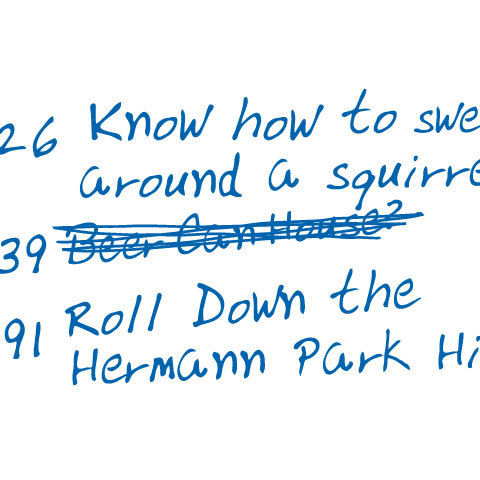 26 Know how to swe
around a squirre
39 Beer Can House?
91 Roll Down the
Hermann Park Hi